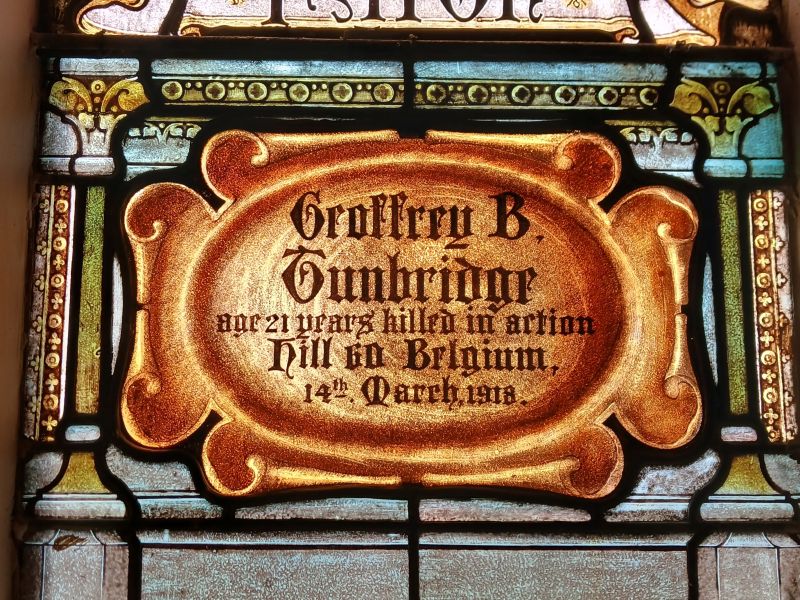 Geoffrey B.
Tunbridge
age 21 years killed in action
Hill 60 Belgium,
14th. March, 1918.